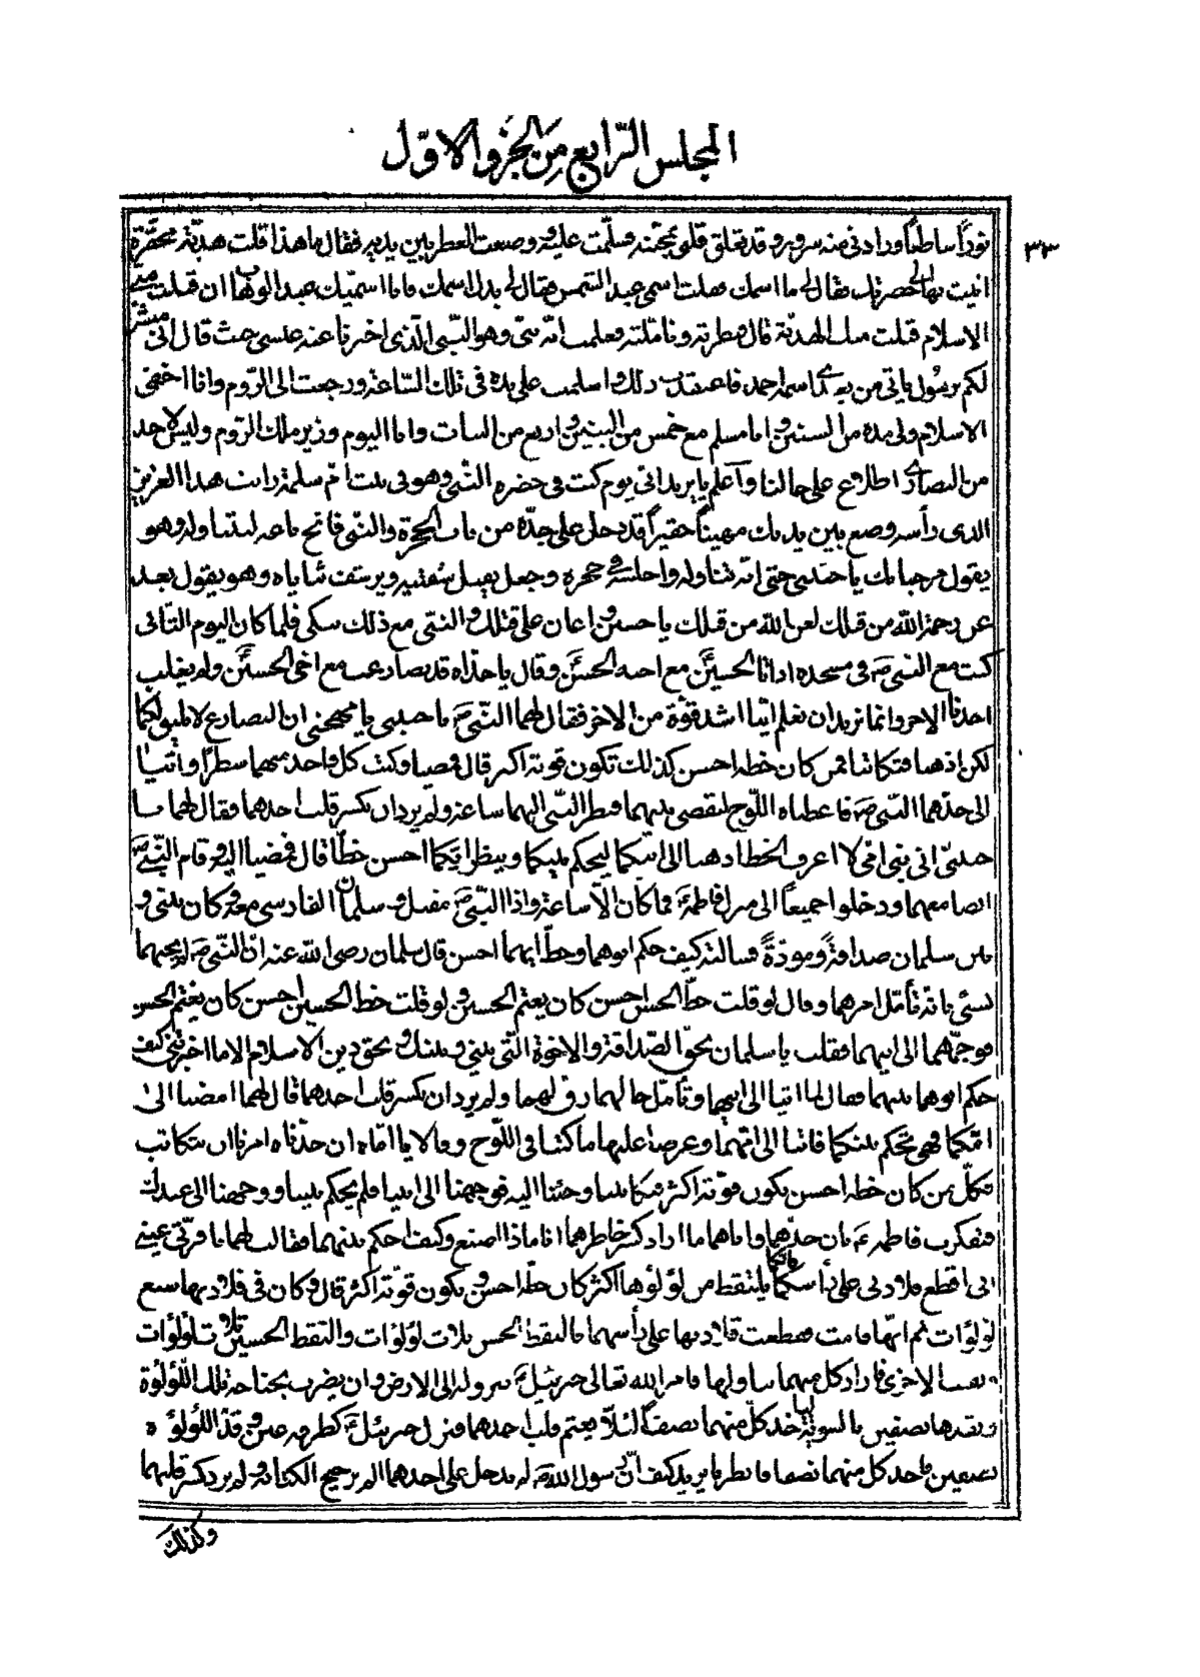 المجلس الرابع من الجزو الاول
٣٣
نوراً ساطعاً وزادني منه سرور وقد تعلق قلبي بمحبته فسلّمت عليه ووضعت العطر بين يديه فقال ما هذا قلت هديّة محقّرة
اتيت بها الى حضرتك فقال لي ما اسمك فقلت اسمي عبد الشمس فقال لي بدل اسمك فانا اسمّيك عبد الوهاب ان قبلت منّي
الاسلام قبلت منك الهديّة قال فنظرته وتأملته فعلمت انّه نبيّ وهو النّبي الّذي اخبرنا عنه عيسى حيث قال انّي مبشر
لكم برسول ياتي من بعدي اسمه احمد فاعتقدت ذلك واسلمت على يده في تلك السّاعة ورجعت الى الرّوم وانا اخفي
الاسلام ولي مدة من السنين وانا مسلم مع خمس من البنين واربع من البنات وانا اليوم وزير ملك الروم وليس لاحد
من النصارى اطلاع على حالنا واعلم يا يزيد انّي يوم كنت في حضرة النّبي وهو في بيت امّ سلمة رايت هذا العزيز
الذي رأسه وضع بين يديك مهيناً حقيراً قد دخل على جدّه من باب الحجرة والنّبي فاتح باعه ليتناوله وهو
يقول مرحبا بك يا حبيبي حتى انّه تناوله واجلسه في حجره وجعل يقبل شفتيه ويرشف ثناياه وهو يقول بعد
عن رحمة الله من قتلك لعن الله من قتلك يا حسين واعان على قتلك والنبي مع ذلك يبكي فلما كان اليوم الثاني
كنت مع النّبي ص في مسجده اذ اتاه الحسين ع مع اخيه الحسن ع وقال يا جدّاه قد تصارعت مع اخي الحسن ع ولم يغلب
احدنا الاخر وانما نريد ان نعلم ايّنا اشد قوّة من الاخر فقال لهما النّبي ص يا حبيبي يا مهجتي ان التصارع لا يليق لكما
لكن اذهبا فتكاتبا فمن كان خطه احسن كذلك تكون قوته اكبر قال فمضيا وكتب كل واحد منهما سطراً واتيا
الى جدّهما النّبي ص فاعطياه اللّوح ليقضي بينهما فنظر النّبي اليهما ساعة ولم يرد ان يكسر قلب احدهما فقال لهما يا
حبيبيّ اني نبي امّي لا اعرف الخط اذهبا الى ابيكما ليحكم بينكما وينظر ايّكما احسن خطّاً قال فمضيا اليه وقام النّبي ص
ايضا معهما ودخلوا جميعاً الى منزل فاطمة ع فما كان الّا ساعة واذا النّبي ص مقبل وسلمان الفارسي معه وكان بيني و
بين سلمان صداقة ومودّة فسالته كيف حكم ابوهما وخطّ ايهما احسن قال سلمان رضي الله عنه انّ النّبي ص لم يجبهما
بشئ لانه تأمّل امرهما وقال لو قلت خطّ الحسن احسن كان يغتم الحسين ولو قلت خط الحسين احسن كان يغتم الحسن
فوجّههما الى ابيهما فقلت يا سلمان بحقّ الصّداقة والاخوة الّتي بيني وبينك وبحق دين الاسلام الا ما اخبرتني كيف
حكم ابوهما بينهما فقال لما اتيا الى ابيهما وتأمّل حالهما رقّ لهما ولم يرد ان يكسر قلب احدهما قال لهما امضيا الى
امّكما فهي تحكم بينكما فاتيا الى امّهما وعرضا عليها ما كتبا في اللّوح وقالا يا امّاه ان جدّناه امرنا ان نتكاتب
فكلّ من كان خطه احسن تكون قوّته اكثر فتكاتبنا وجئنا اليه فوجهنا الى ابينا فلم يحكم بيننا ووجهنا الى عندك
فتفكرت فاطمة ع بان جدّهما واباهما ما ارادا كسر خاطرهما انا ماذا اصنع وكيف احكم بينهما فقالت لهما يا قرّتي عيني
انّي اقطع قلادتي على رأسكما فايّكما يلتقط من لؤلؤها اكثر كان خطّه احسن وتكون قوّته اكثر قال وكان في قلادتها سبع
لؤلؤات ثم انّها قامت فقطعت قلادتها على رأسهما فالتقط الحسن ثلاث لؤلؤات والتقط الحسين ثلاث لؤلؤات
وبقيت الاخرى فاراد كل منهما تناولها فامر الله تعالى جبرئيل ع بنزوله الى الارض وان يضرب بجناحه تلك اللّؤلؤة
ويقدها نصفين بالسوية لياخذ كلّ منهما نصفاً لئلّا يغتم قلب احدهما فنزل جبرئيل ع كطرفة عين وقدّ اللّؤلؤة
نصفين فاخذ كل منهما نصفا فانظر يا يزيد كيف انّ رسول الله ص لم يدخل على احدهما الم ترجيح الكتابة ولم يرد كسر قلبهما
وكذلك